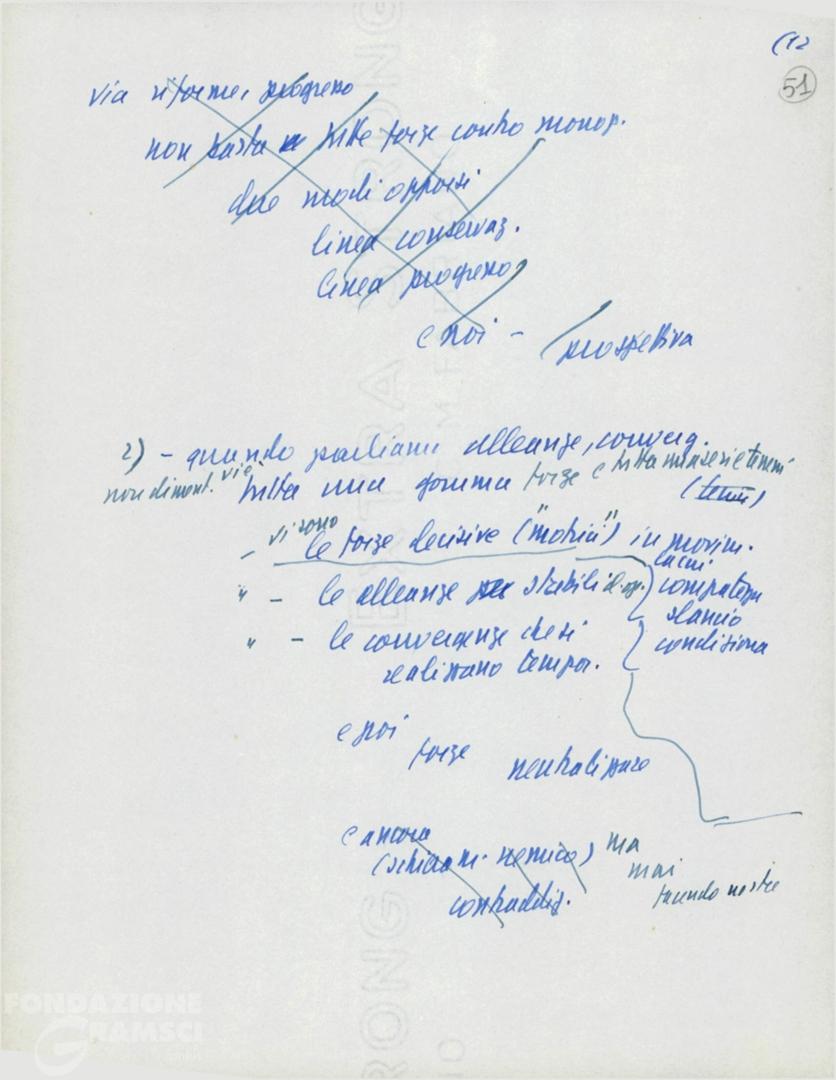 (12
51
via riforme, progresso
non basta tutte forze contro monop.
due modi opporsi
linea conservaz.
linea progresso
e poi - prospettiva
2) - quando parliamo alleanze, converg.
non diment. vi è tutta una gamma forze e tutta una serie temi
(temi)
- vi sono le forze decisive ("motrici") in movim.
" - le alleanze stabili
" - le convergenze che si
realizzano tempor.
slancio
condiziona
e poi
forze neutralizzare
e ancora
(schieram. nemico) ma
contraddiz. mai
facendo nostre
EXTRA STRONG
FONDAZIONE
GRAMSCI